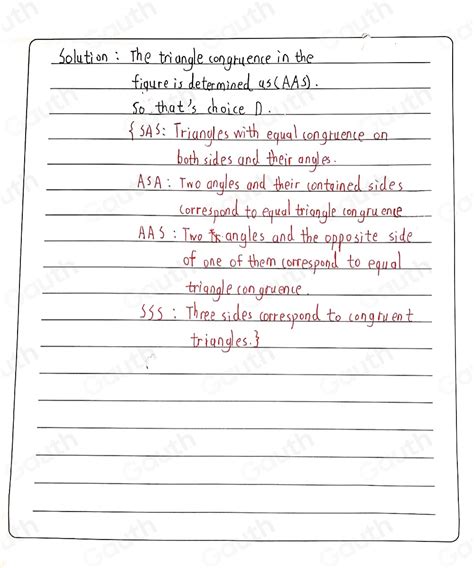 Solution : The triangle congruence in the
figure is determined as (AAS).
So that's choice D.
{SAS: Triangles with equal congruence on
both sides and their angles.
ASA : Two angles and their contained sides
correspond to equal triangle congruence
AAS : Two angles and the opposite side
of one of them correspond to equal
triangle congruence.
SSS : Three sides correspond to congruent
triangles.}
Gauth